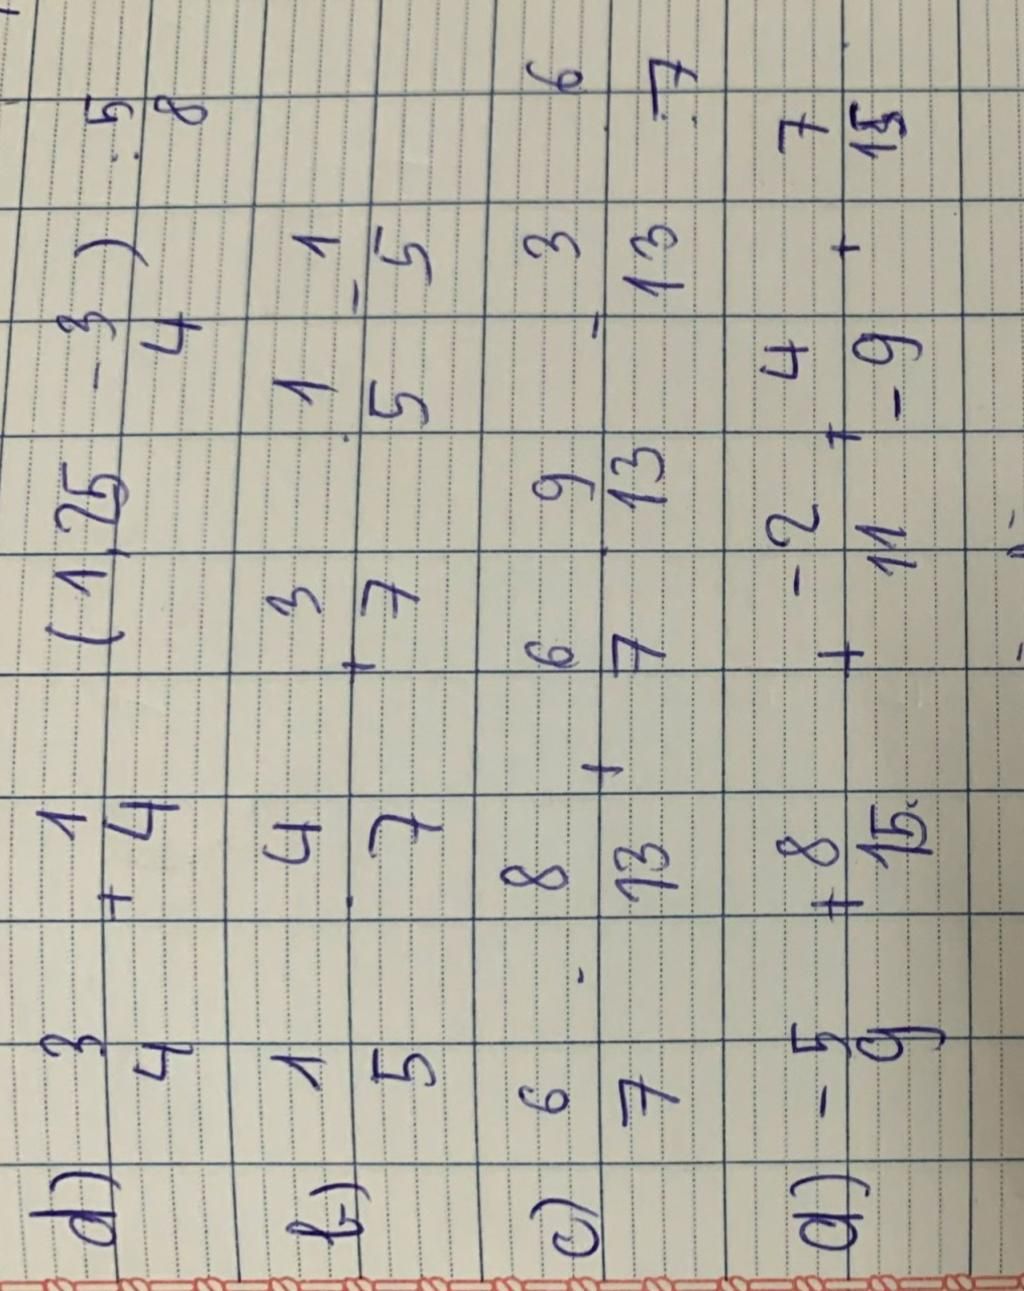 d) 3/4 + 1/4 (1,25 - 3/4) : 5/8
b) 1/5 . 4/7 + 3/7 . 1/5 - 1/5
c) 6/7 . 8/13 + 6/7 . 9/13 - 3/13 . 6/7
a) -5/9 + 8/15 + -2/11 + 4/-9 + 7/15